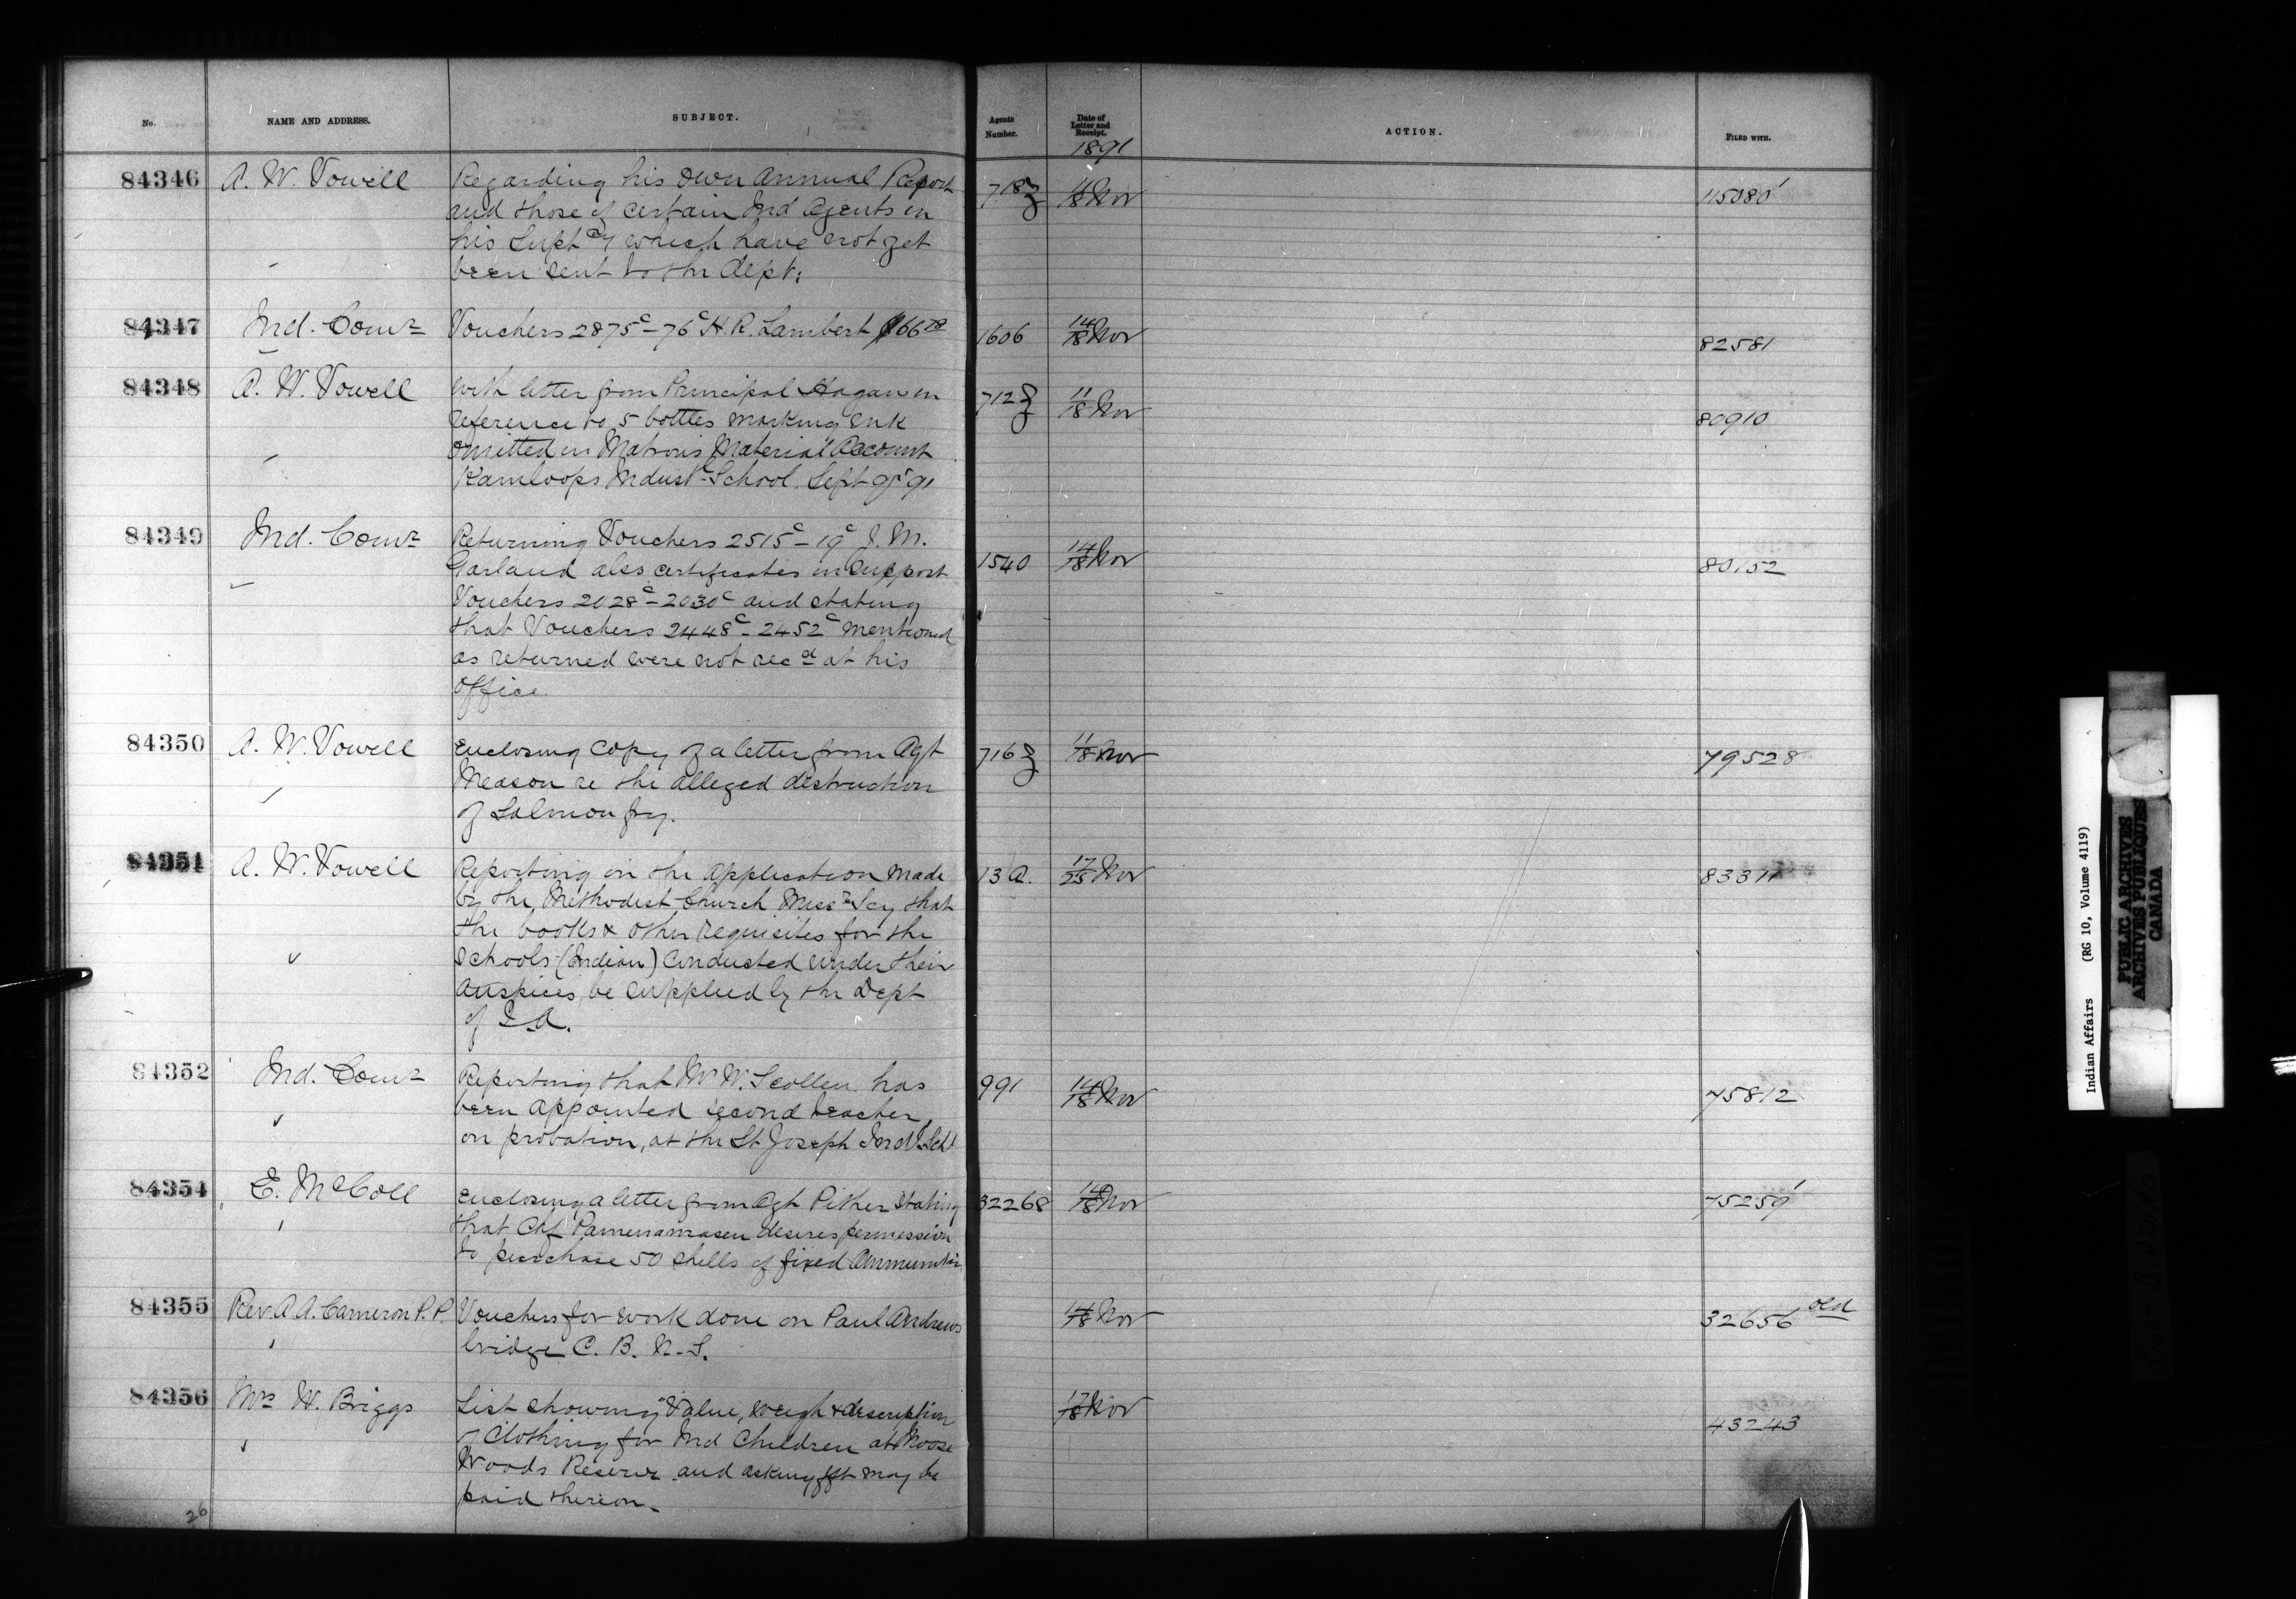 No.
NAME AND ADDRESS.
SUBJECT.
Agents Number.
Date of Letter and Receipt.
1891
ACTION.
FILED WITH.
84346 A. W. Vowell Regarding his own Annual Report 11/18 Nov
and those of certain Ind Agents in
his Supt cy which have not yet
been sent to the Dept.
84347 Ind. Comr Vouchers 2875c - 76c H. R. Lambert $66 78 1606 14/18 Nov 82581
84348 A. W. Vowell With letter from Principal Hagan in 712 11/18 Nov 80910
reference to 5 bottles marking ink
omitted in Matron's Material Account
Kamloops Indust l School. Sept qr 91
84349 Ind. Comr Returning Vouchers 2515c - 19c J. M. 1540 14/18 Nov 80152
Garland also certificates in support
Vouchers 2028c - 2030c and stating
that Vouchers 2448c - 2452c mentioned
as returned were not recd at his
office
84350 A. W. Vowell Enclosing copy of a letter from Agt 716 11/18 Nov 79528
Meason re the alleged destruction
of Salmon fry.
84351 A. W. Vowell Reporting on the application made 13 A. 17/25 Nov
by the Methodist Church Missry Scy that
the books & other requisites for the
Schools (Indian) conducted under their
auspices, be supplied by the Dept
of I. A.
84352 Ind. Comr Reporting that Mr W. Scollen has 991 14/18 Nov 75812
been appointed second teacher,
on probation, at the St Joseph Indl Schl
84354 E. McColl Enclosing a letter from Agt Pither stating 32268 14/18 Nov 75259
that Chf desires permission
to purchase 50 shells of fixed ammunition
84355 Rev. A. A. Cameron P. P. Vouchers for work done on Paul Andrews 14/18 Nov 32656 old
bridge C. B. N. S.
84356 Mrs W. Briggs List showing value, weigh & description 17/18 Nov 43243
of Clothing for Ind Children at Moose
Woods Reserve and asking frt may be
paid thereon.
26
Indian Affairs (RG 10, Volume 4119)
PUBLIC ARCHIVES
ARCHIVES PUBLIQUES
CANADA